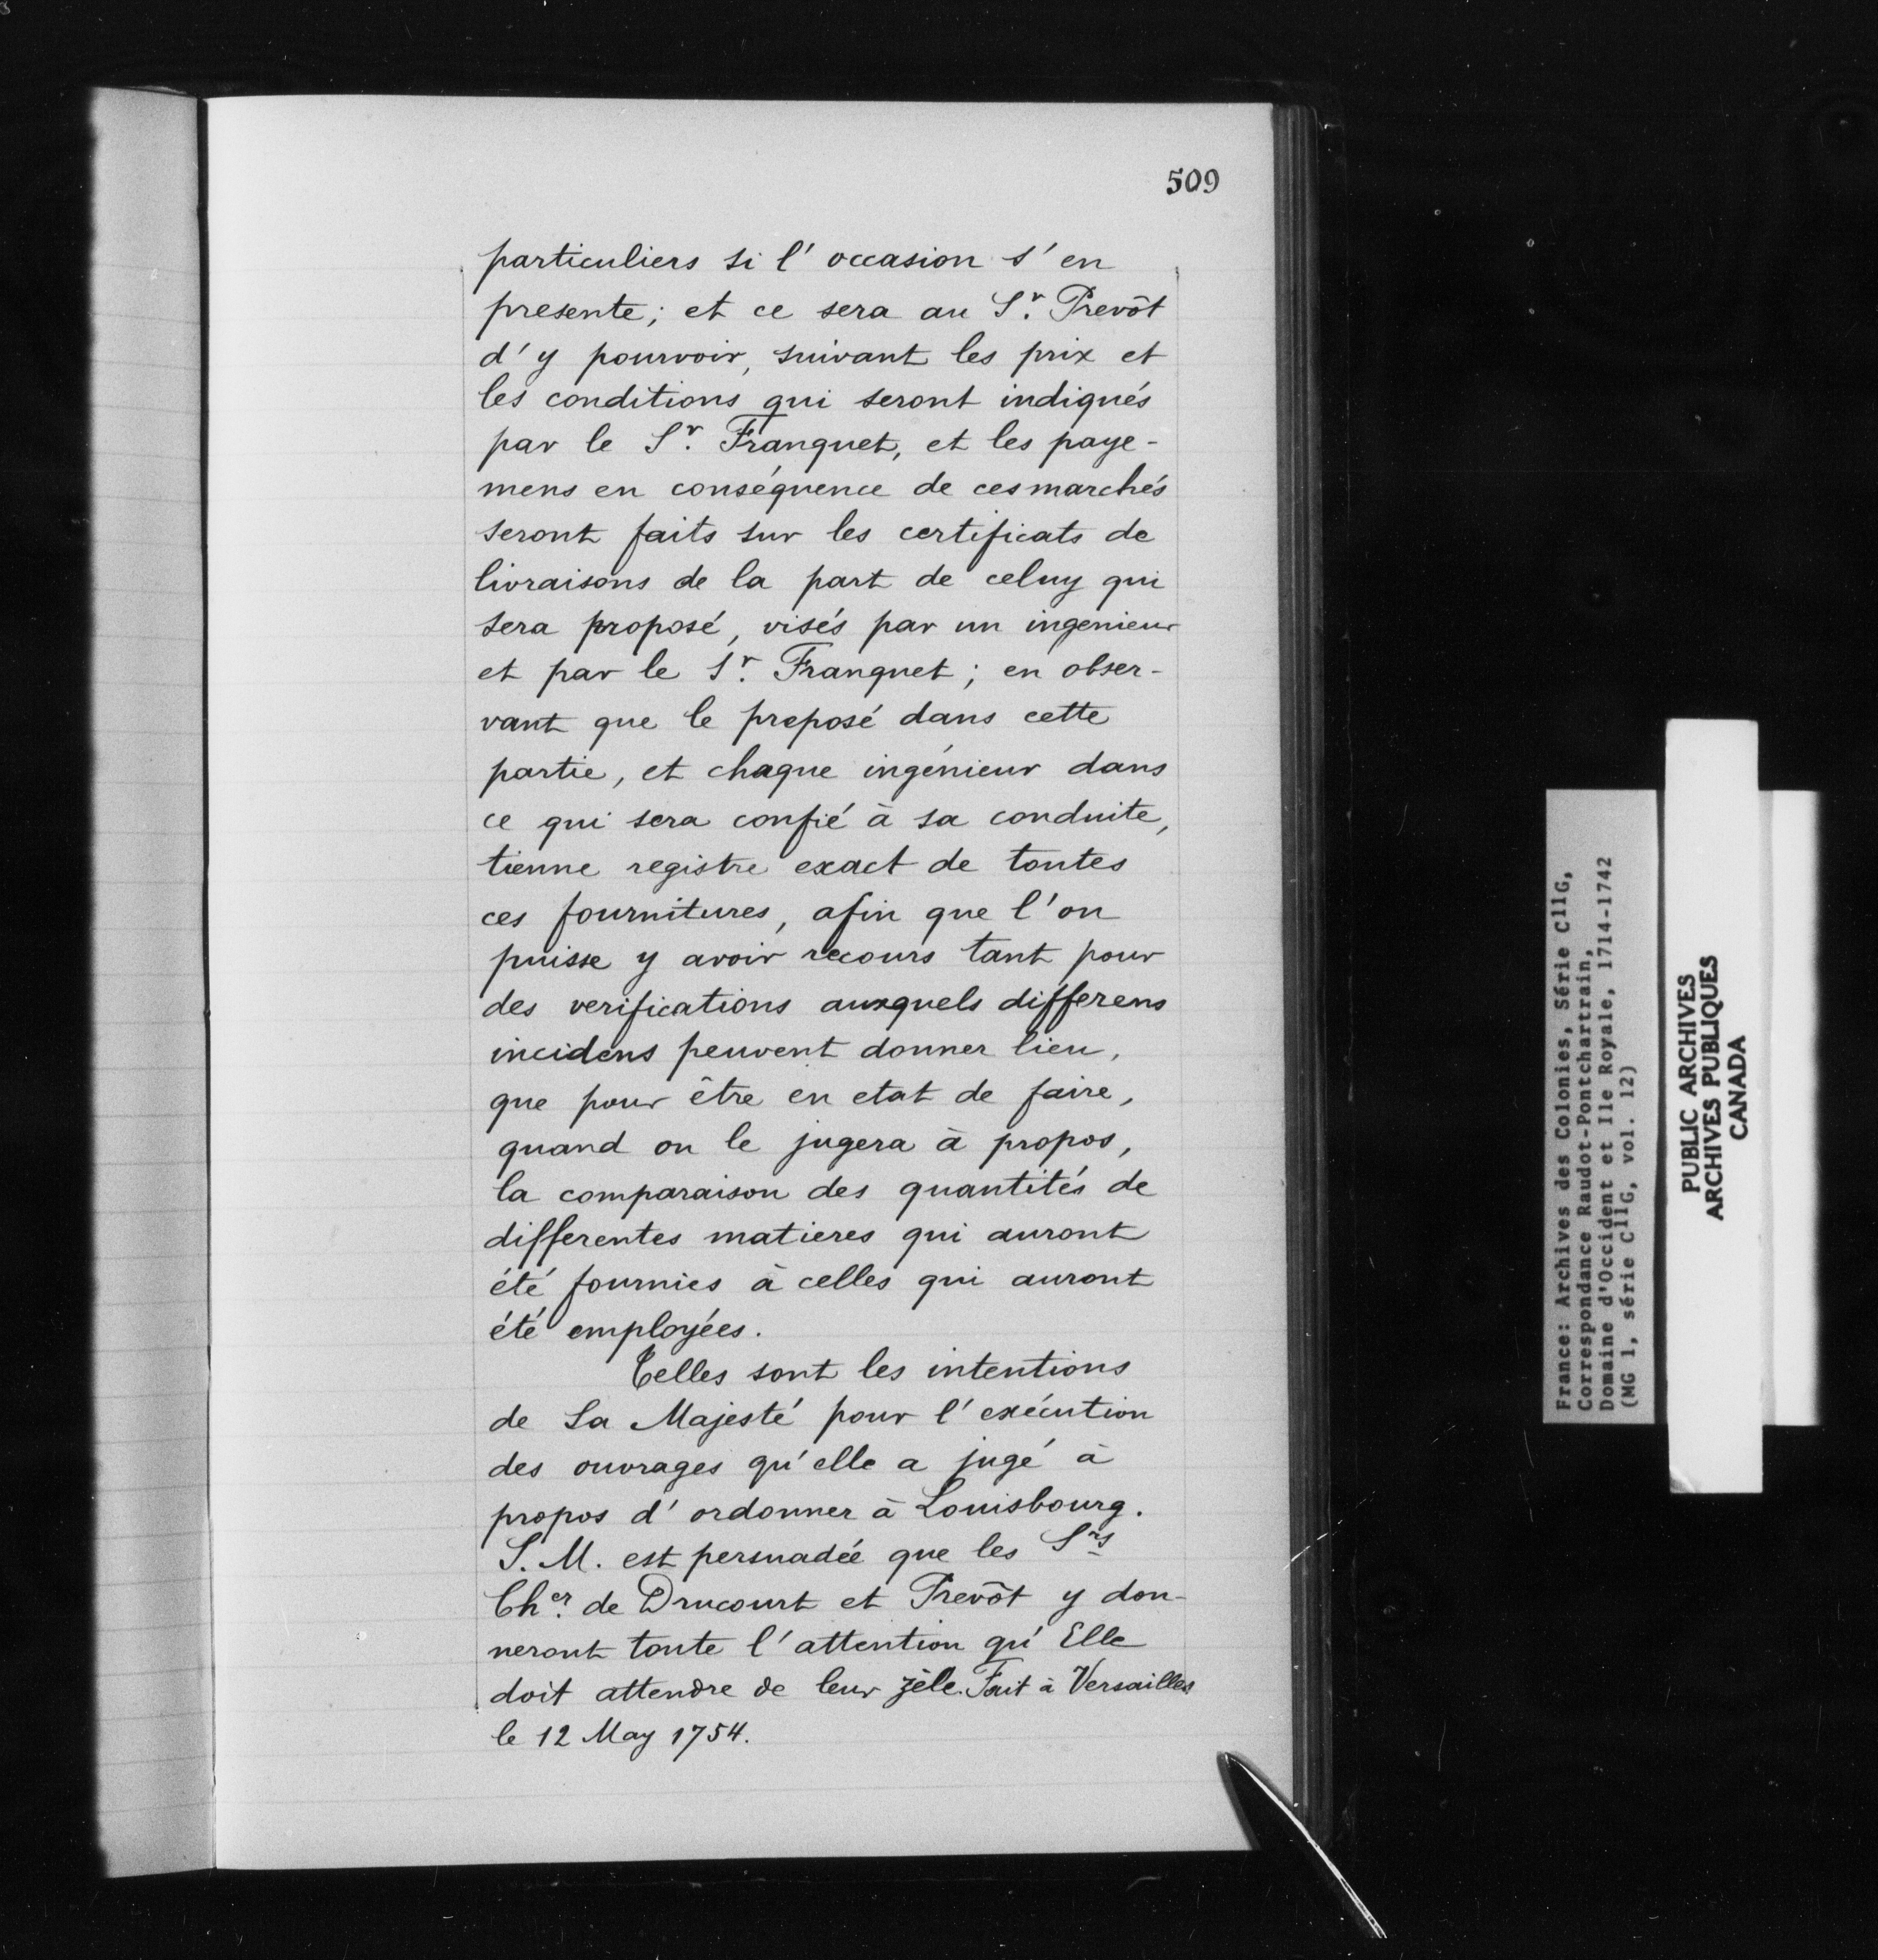 509
particuliers si l'occasion s'en
presente; et ce sera au Sr. Prevôt
d'y pourvoir, suivant les prix et
les conditions qui seront indiqués
par le Sr. Franquet, et les paye-
mens en conséquence de ces marchés
seront faits sur les certificats de
livraisons de la part de celuy qui
sera proposé, visés par un ingenieur
et par le Sr. Franquet; en obser-
vant que le preposé dans cette
partie, et chaque ingénieur dans
ce qui sera confié à sa conduite,
tienne registre exact de toutes
ces fournitures, afin que l'on
puisse y avoir recours tant pour
des verifications auxquels différens
incidens peuvent donner lieu,
que pour être en etat de faire,
quand on le jugera à propos,
la comparaison des quantités de
differentes matieres qui auront
été fournies à celles qui auront
été employées.
Telles sont les intentions
de Sa Majesté pour l'exécution
des ouvrages qu'elle a jugé à
propos d'ordonner à Louisbourg.
S. M. est persuadée que les Srs
Cher. de Drucourt et Prevôt y don-
neront toute l'attention qu'Elle
doit attendre de leur zèle. Fait à Versailles
le 12 May 1754.
France: Archives des Colonies, Série C11G,
Correspondance Raudot-Pontchartrain,
Domaine d'Occident et Ile Royale, 1714-1742
(MG 1, série C11G, vol. 12)
PUBLIC ARCHIVES
ARCHIVES PUBLIQUES
CANADA